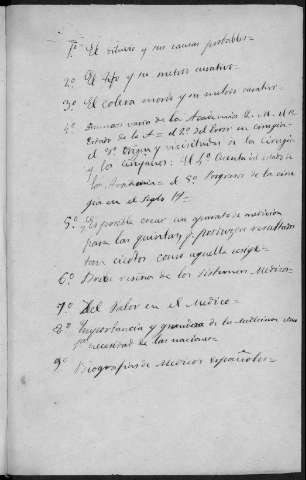 1º El y sus causas probables =
2º El tifo y su metodo curativo =
3º El colera morbo y su metodo curativo =
4º vario de la Academia Q. M. el 1º
Estado de la A = el 2º del Error en cirugia =
el 3º Origen y vicisitudes de la Cirugia
y los cirujanos: El 4º Cuenta del estado de
la Academia = el 5º Progresos de la ciru
gia en el siglo 19 =
5º ¿Es posible crear un aparato de medicion
para las quintas, q. produzca resultados
tan ciertos como aquella exige =
6º Doble reseña de los sistemas Medicos =
7º Del Valor en el Medico =
8º Importancia y grandeza de la Medicina como
pª necesidad de las naciones =
9º Biografias de Medicos Españoles =